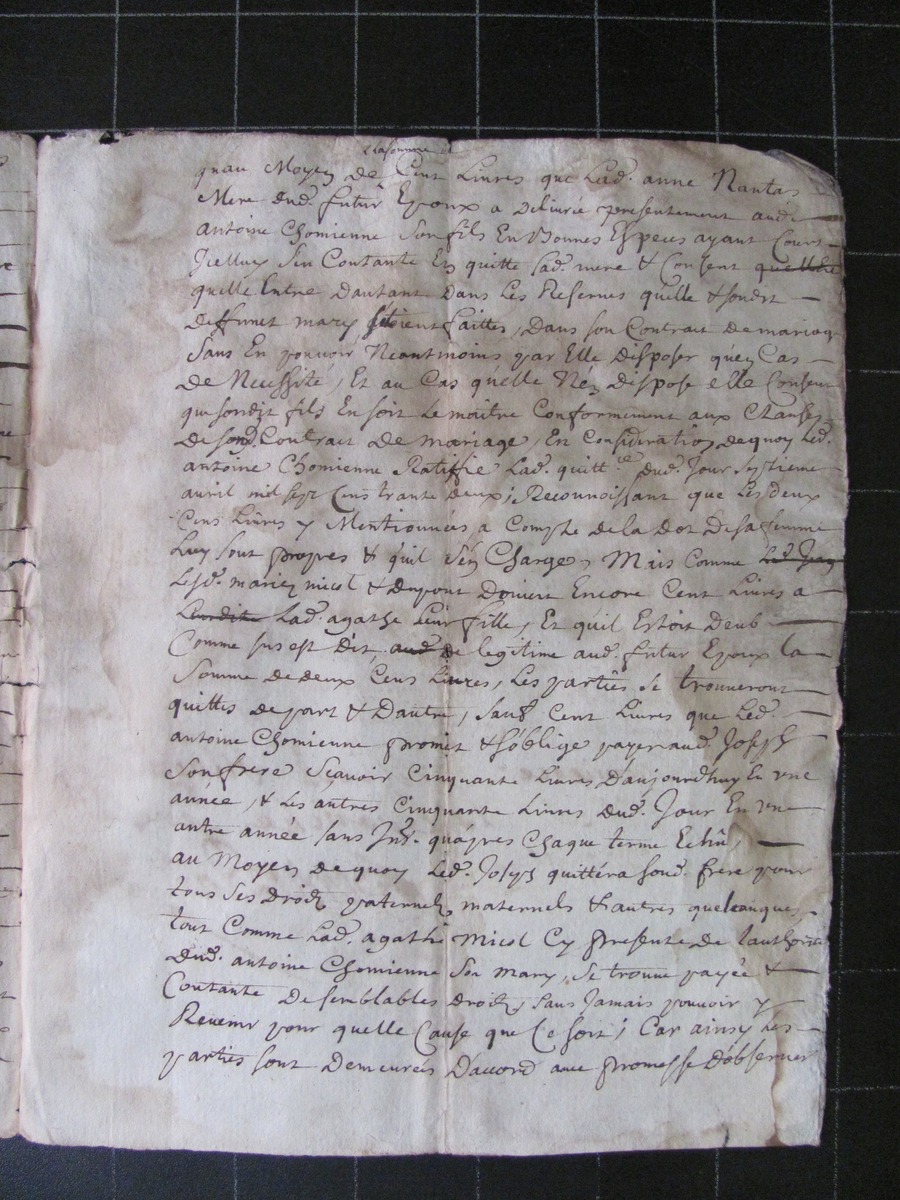 la somme de
quau Moyen de Cent Livres que Lad. anne Nantas
Mere dud. futur Epoux a delivrée presentement aud.
antoine Chomienne son fils En bonnes Especes ayant Cours
Jcelluy s'en Contante En quitte lad. mere & Consent quelle
quelle Entre dautant Dans Les Reserves qu'elle & sondit
deffunct mary s'étoient faittes, Dans son Contrait de mariage
Sans En pouvoir Neantmoins par Elle disposer qu'en Cas
De Necessité, Et au Cas qu'elle N'en dispose elle Consent
que sondit fils En soit Le maitre Conformement aux Clauses
de sond. Contrait de mariage, En Consideration de quoy Led.
antoine Chomienne Ratiffie Lad. quitt.ce dud. Jour septieme
avril mil sept Cens trante deux; Reconnoissant que Les deux
Cens Livres y Mentionnées a Compte de la Dot De sa femme
Luy sont propres & qu'il s'en Charge, Mais Comme Led.
Lesd. mariez micol & dupont Doivent Encore Cent Livres a
Lad. agathe Leur fille, Et qu'il Estoit deub
Comme sus est Dit, aud. de legitime aud. futur Epoux la
Somme de deux Cens Livres, Les parties se trouveront
quittes de part & Dautre, sauf Cent Livres que Led.
antoine Chomienne promet & s'oblige payer aud. Joseph
Son frere Sçavoir Cinquante Livres D'aujourdhuy En une
année, & Les autres Cinquante Livres dud. Jour En une
autre année sans Jnt. qu'apres Chaque terme Echû,
au Moyen de quoy Led. Joseph quittera sond. frere pour
tous ses droits paternels maternels & autres quelconques,
tout Comme Lad. agathe Micol Cy presente, de l'authorité
Dud. antoine Chomienne Son mary, se trouve payée &
Contante De semblables droits, sans Jamais pouvoir y
Revenir pour quelle Cause que Ce soit; Car ainsy Les
parties sont Demeurées D'accord avec promesse D'observer